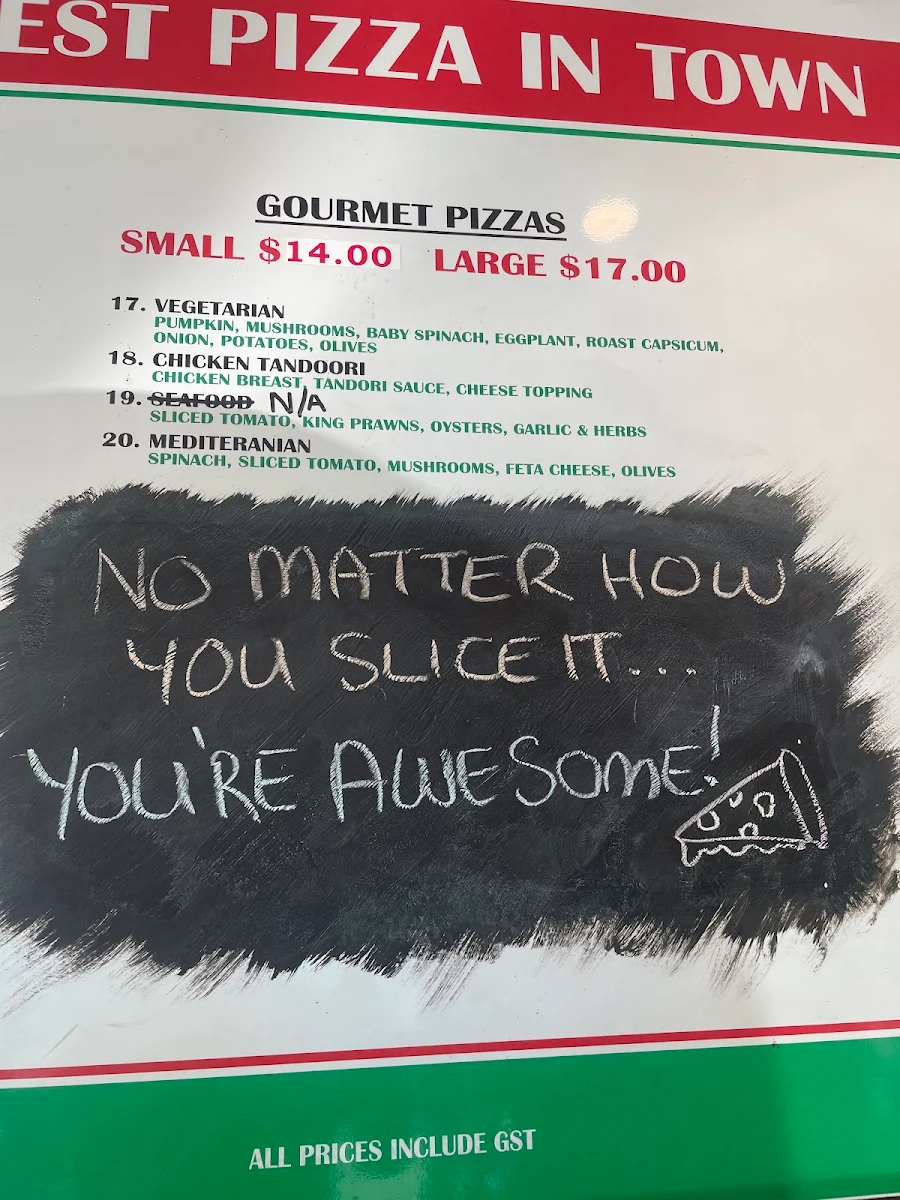 EST PIZZA IN TOWN
GOURMET PIZZAS
SMALL $14.00 LARGE $17.00
17. VEGETARIAN
PUMPKIN, MUSHROOMS, BABY SPINACH, EGGPLANT, ROAST CAPSICUM,
ONION, POTATOES, OLIVES
18. CHICKEN TANDOORI
CHICKEN BREAST, TANDORI SAUCE, CHEESE TOPPING
19. SEAFOOD N/A
SLICED TOMATO, KING PRAWNS, OYSTERS, GARLIC & HERBS
20. MEDITERANIAN
SPINACH, SLICED TOMATO, MUSHROOMS, FETA CHEESE, OLIVES
NO MATTER HOW
YOU SLICE IT...
YOU'RE AWESOME!
ALL PRICES INCLUDE GST